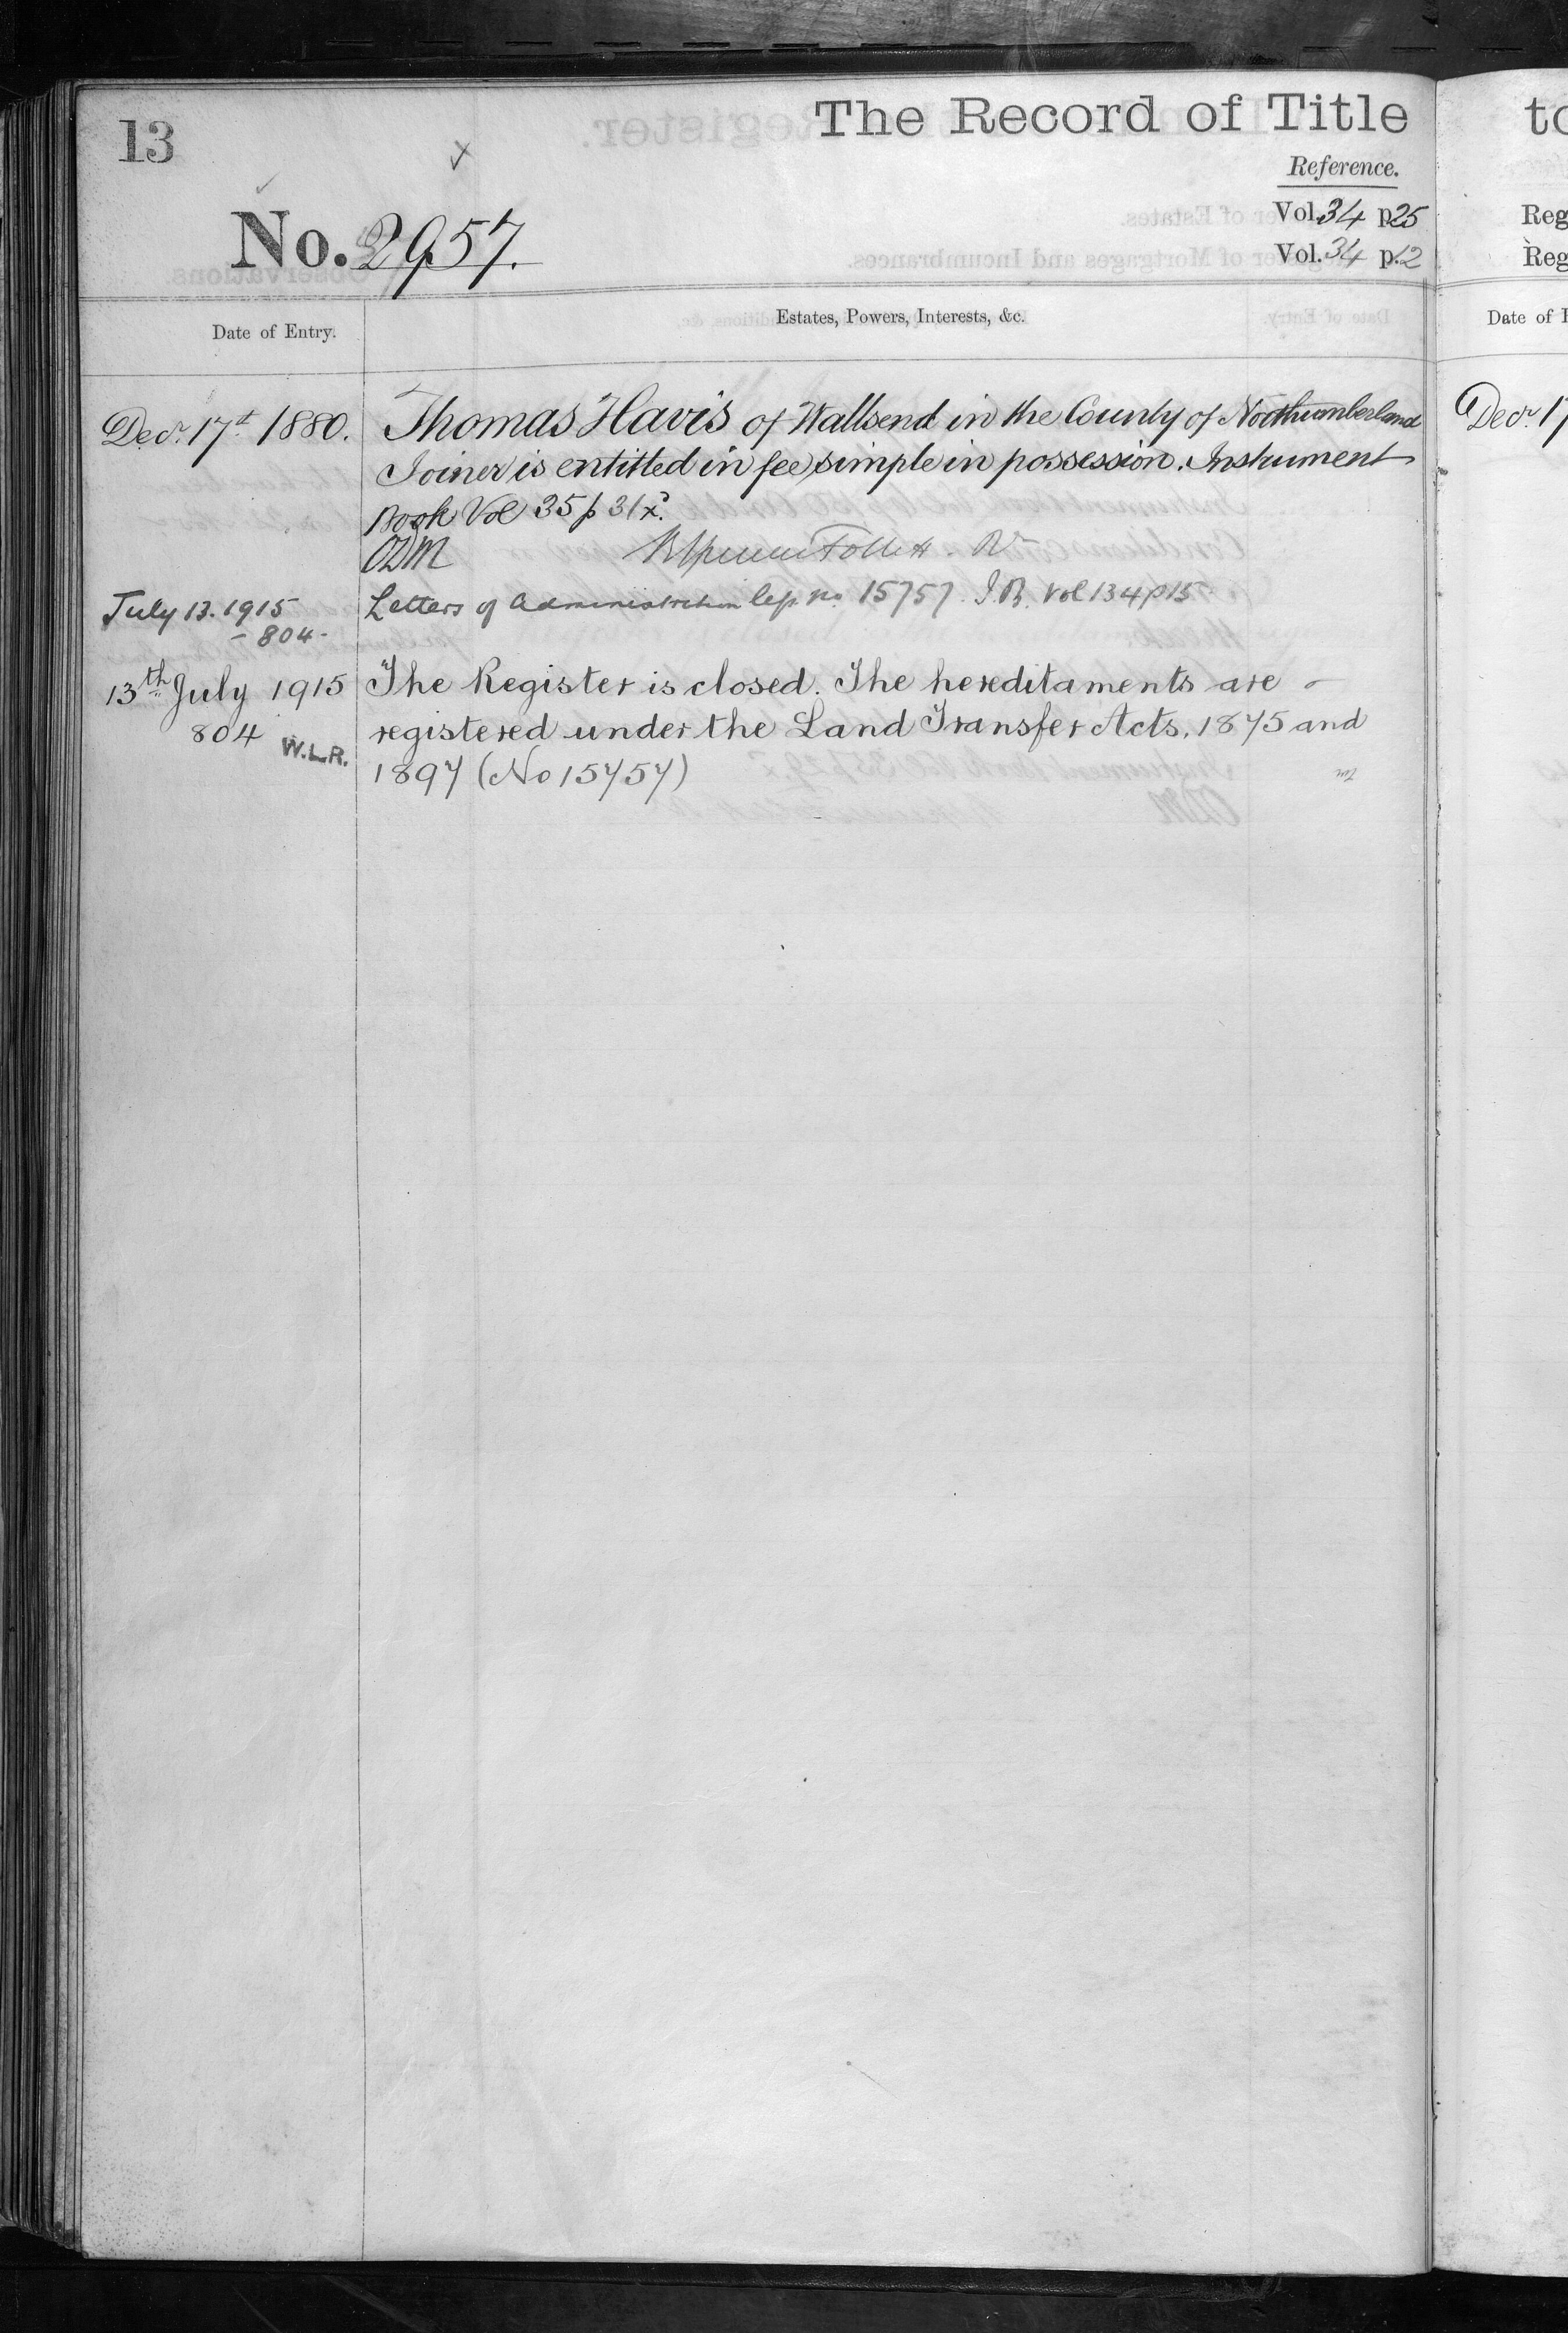 13
The Record of Title
Reference.
No. 2957.
Vol. 34 p25
Vol. 34 p.12
Date of Entry.
Estates, Powers, Interests, &c.
Decr. 17th 1880.
Thomas Havis of Wallsend in the County of Northumberland
Joiner is entitled in fee simple in possession. Instrument
Book Vol 35 p 31
July 13. 1915
- 804 -
Letters of Administration no. 15757. I.B. Vol 134 p 15
13th July 1915
804
W.L.R.
The Register is closed. The hereditaments are
registered under the Land Transfer Acts, 1875 and
1897 (No 15757)
to
Reg
Reg
Date of
Decr. 17